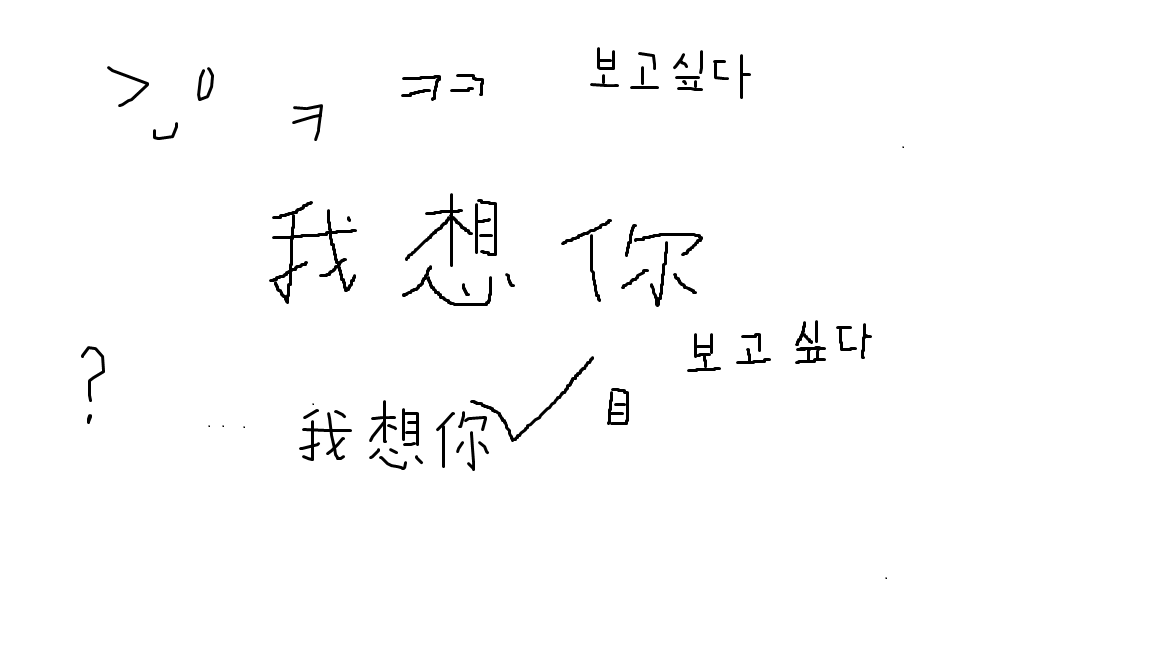 >_0 ㅋ ㅋㅋ 보고싶다
我想你
보고싶다
? ... 我想你 目